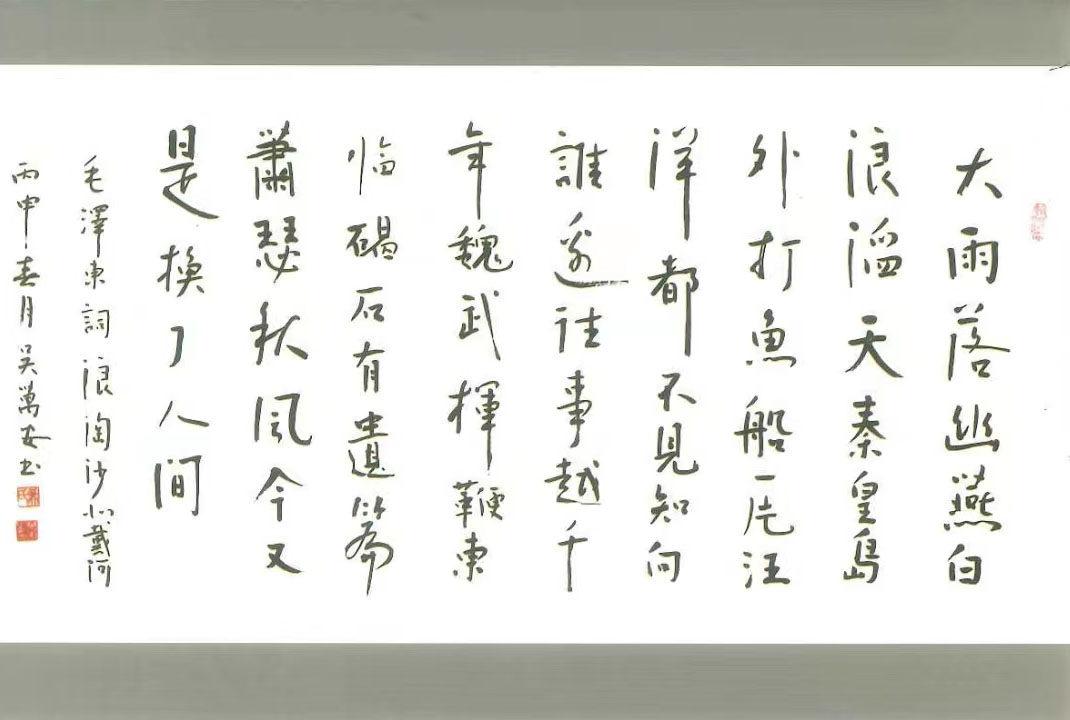 大雨落幽燕白
浪滔天秦皇島
外打魚船一片汪
洋都不見知向
誰邊往事越千
年魏武揮鞭東
临碣石有遺篇
蕭瑟秋風今又
是換了人間
毛澤東詞浪淘沙北戴河
丙申春月吳萬安书